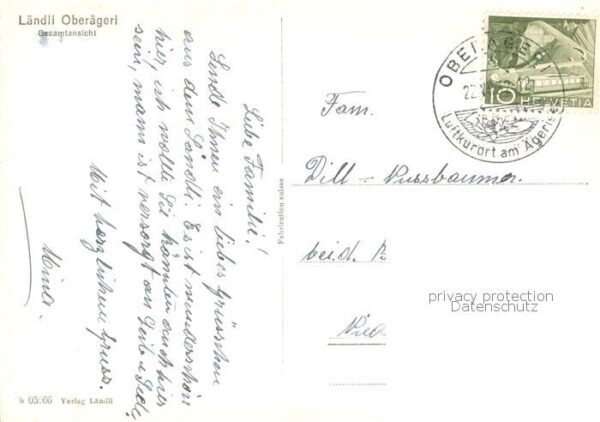 Ländli Oberägeri
Gesamtansicht
Liebe Familie!
Sende Ihnen ein liebes Grüsschen
aus dem Ländli. Es ist wunderschön
hier, ich wollte Sie könnten auch hier
sein, mann ist versorgt an Leib u Seele,
Mit herzlichem Gruss.
b 05:66 Verlag Ländli
Fabrication suisse
OBERÄGERI
Luftkurort am Ägerisee
10 HELVETIA
Fam.
Dill-Nussbaumer.
beid. B
privacy protection
Datenschutz